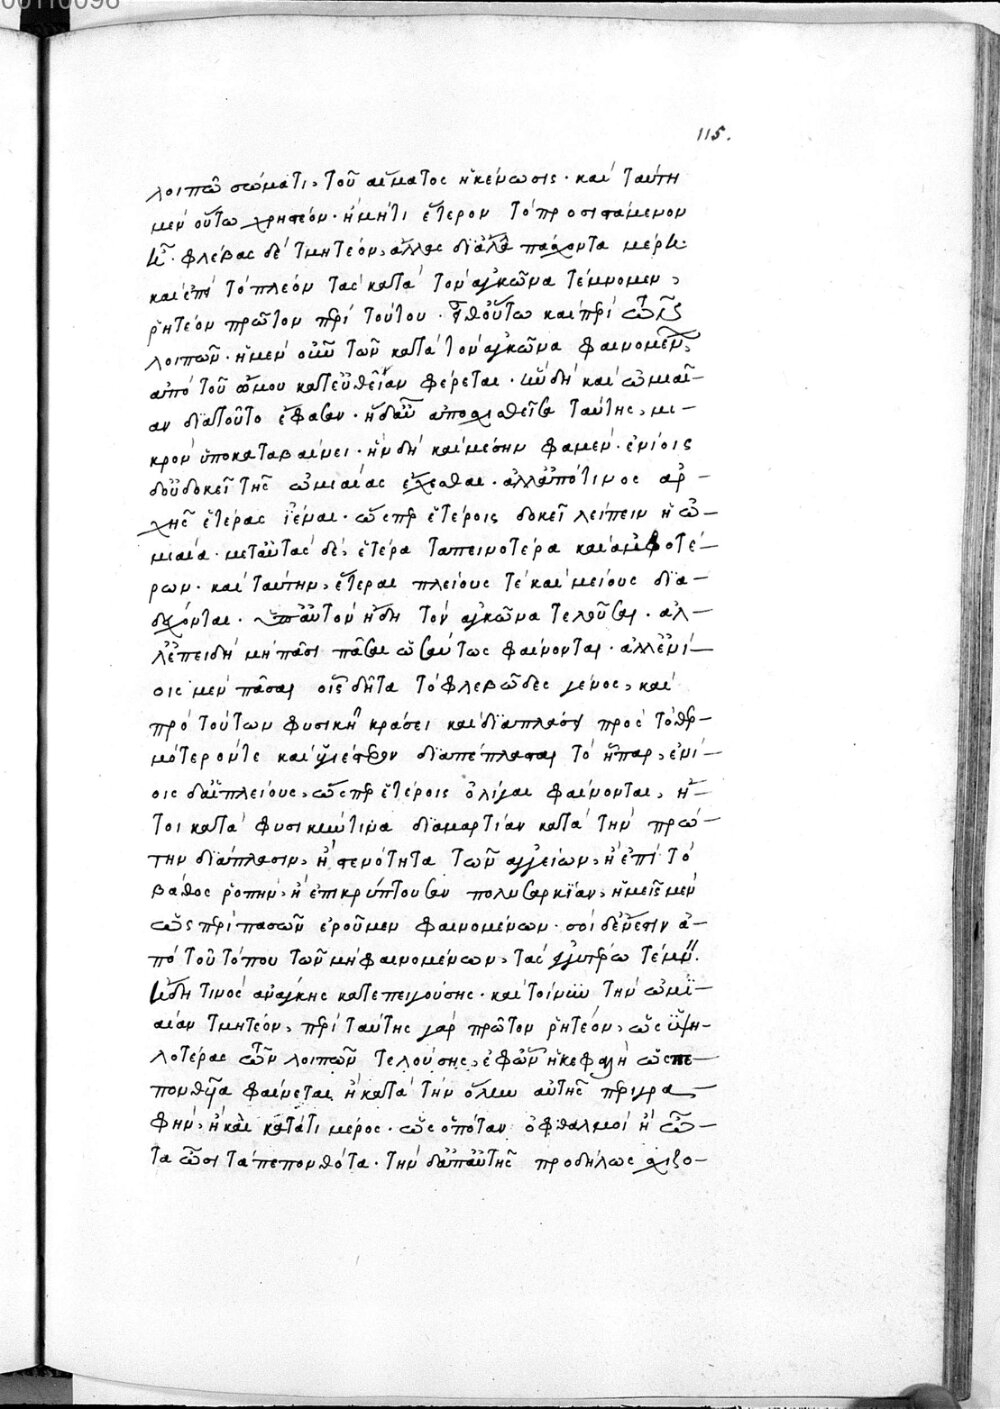 115.
λοιπῶ σώματι, τοῦ αἵματος ἡ κένωσις· καὶ ταύτη
μὲν οὕτω χρηστέον· ἢ μήτι ἕτερον τὸ προσιστάμενον
φλέβας δὲ τμητέον, ἄλλας διάλλα πάσχοντα μέρη·
καὶ ἐπὶ τὸ πλέον τὰς κατὰ τὸν ἀγκῶνα τέμνομεν,
ῥητέον πρῶτον περὶ τούτου· εἶθ οὕτω καὶ περὶ τῶν
λοιπῶν· ἡ μὲν οὖν τῶν κατὰ τὸν ἀγκῶνα φαινομένων,
ἀπὸ τοῦ ὤμου κατευθεῖαν φέρεται· ἣν δὴ καὶ ὠμιαί-
αν διατοῦτο ἔφασαν· ἡ δὲ ἀποσχισθεῖσα ταύτης, μι-
κρὸν ὑποκαταβαίνει· ἣν δὴ καὶ μέσην φαμέν· ἐνίοις
δ οὐ δοκεῖ τῆς ὠμιαίας ἔχεσθαι· ἀλλ ἀπό τινος ἀρ-
χῆς ἑτέρας ἰέναι· ὥσπερ ἑτέροις δοκεῖ λείπειν ἡ ὠ-
μιαία· μετ αὐτὰς δὲ, ἑτέρα ταπεινοτέρα καὶ ἀμφοτέ-
ρων· καὶ ταύτην, ἕτεραι πλείους τὲ καὶ μείους δια-
δέχονται· αὐτὸν ἤδη τὸν ἀγκῶνα τελοῦσαι· ἀλ-
λ ἐπειδὴ μὴ πᾶσι πᾶσαι ὡσαύτως φαίνονται· ἀλλ ἐνί-
οις μὲν πᾶσαι οἷς δῆτα τὸ φλεβῶδες γένος, καὶ
πρὸ τούτων φυσικῆ κράσει καὶ διαπλάσει πρὸς τὸ θερ-
μότερόν τε καὶ διαπέπλασται τὸ ἧπαρ, ἐνί-
οις δ αἱ πλείους, ὥσπερ ἑτέροις ὀλίγαι φαίνονται, ἤ-
τοι κατὰ φυσικήν τινα διαμαρτίαν κατὰ τὴν πρώ-
την διάπλασιν, ἢ στενότητα τῶν ἀγγείων, ἢ ἐπὶ τὸ
βάθος ῥοπὴν, ἢ ἐπικρύπτουσαν πολυσαρκίαν, ἡμεῖς μὲν
ὡς περὶ πασῶν ἐροῦμεν φαινομένων· σοὶ δ ἔνεστιν ἀ-
πὸ τοῦ τόπου τῶν μὴ φαινομένων, τὰς τέμν
τινὸς ἀνάγκης κατεπειγούσης· καὶ τοίνυν τὴν ὠμι-
αίαν τμητέον, περὶ ταύτης γὰρ πρῶτον ῥητέον, ὡς ὑψη-
λοτέρας τῶν λοιπῶν τελούσης, ἐφ ὧν ἡ κεφαλὴ ὡς πε-
πονθυῖα φαίνεται ἢ κατὰ τὴν ὅλην αὐτῆς περιγρα-
φὴν, ἢ καὶ κατά τι μέρος· ὡς ὁπόταν ὀφθαλμοὶ ἢ ὦ-
τα ὦσι τὰ πεπονθότα· τὴν δ ἀπ αὐτῆς προδήλως σχιζο-